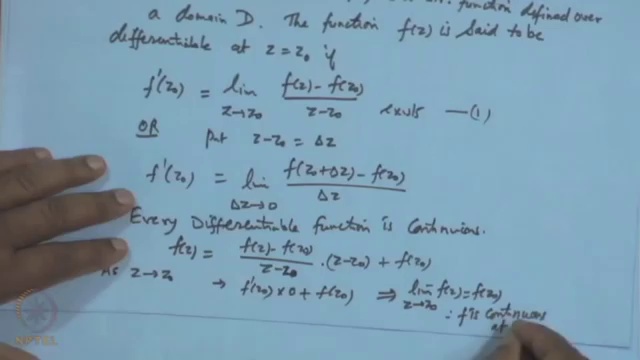 function defined over
a domain D. The function f(z) is said to be
differentiable at z = z₀ if
f'(z₀) = lim z→z₀ (f(z) - f(z₀))/(z - z₀) exists —(1)
OR put z-z₀ = Δz
f'(z₀) = lim Δz→0 (f(z₀+Δz) - f(z₀))/Δz
Every Differentiable function is Continuous.
f(z) = (f(z) - f(z₀))/(z-z₀) . (z-z₀) + f(z₀)
As z→z₀ → f'(z₀) × 0 + f(z₀) ⇒ lim z→z₀ f(z) = f(z₀)
∴ f is Continuous
at
NPTEL